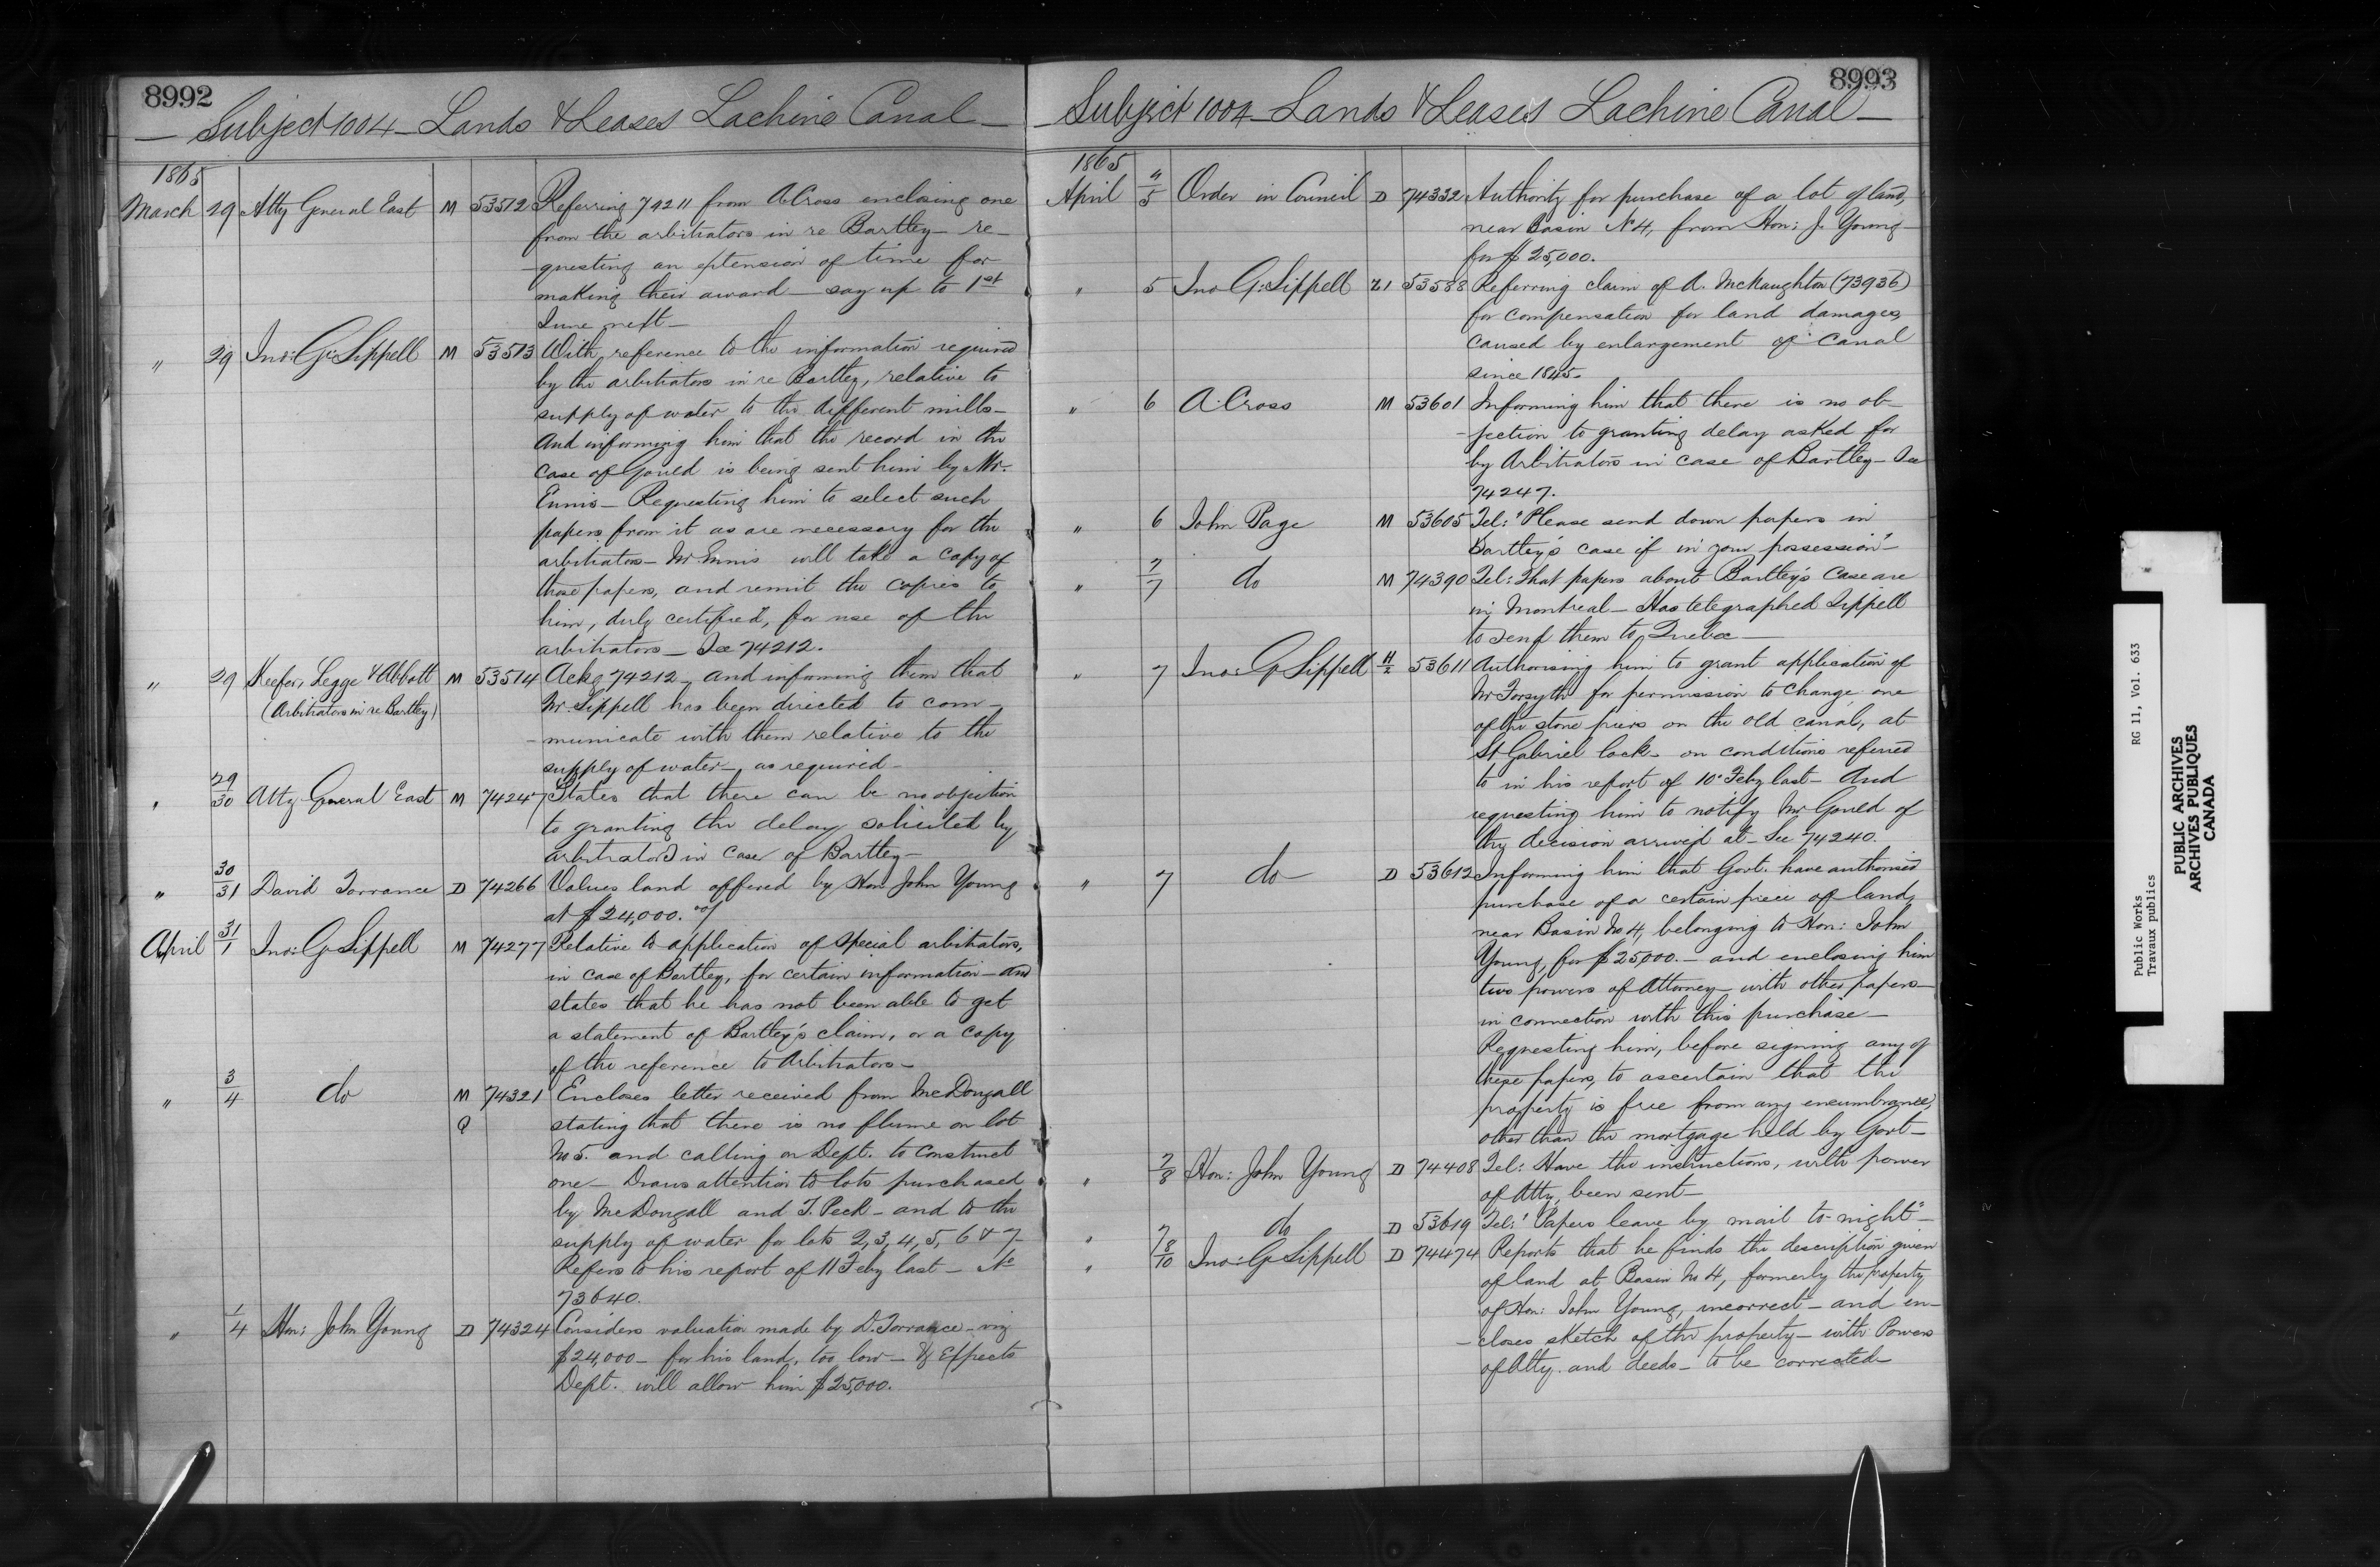 8992
Subject 1004 Lands & Leases Lachine Canal
1865
March 29 Atty General East M 53512 Referring 74211 from A. Cross enclosing one
from the arbitrators in re Bartley — re-
-questing an extension of time for
making their award — say up to 1st
June next —
" 29 Jno: G. Sippell M 53513 With reference to the information required
by the arbitrators in re Bartley, relative to
supply of water to the different mills —
And informing him that the record in the
case of Gould is being sent him by Mr.
Ennis — Requesting him to select such
papers from it as are necessary for the
arbitrators — Mr Ennis will take a copy of
those papers, and remit the copies to
him, duly certified, for use of the
arbitrators — See 74212.
" 29 Keefer, Legge & Abbott M 53514 Ackg 74212, and informing them that
(Arbitrators in re Bartley)
Mr. Sippell has been directed to com-
-municate with them relative to the
supply of water — as required —
" 29/30 Atty General East M 74247 States that there can be no objection
to granting the delay solicited by
arbitrators in case of Bartley —
" 30/31 David Torrance D 74266 Values land offered by Hon: John Young
at $24,000.
April 31/1 Jno: G. Sippell M 74277 Relative to application of special arbitrators,
in case of Bartley, for certain information — and
states that he has not been able to get
a statement of Bartley's claim, or a copy
of the reference to Arbitrators —
" 3/4 do M 74321 Encloses letter received from McDougall
stating that there is no flume on lot
No 5. and calling on Dept. to construct
one — Draws attention to lots purchased
by McDougall and T. Peck — and to the
supply of water for lots 2, 3, 4, 5, 6 & 7 —
Refers to his report of 11 Feby last — No
73640.
" 1/4 Hon: John Young D 74324 Considers valuation made by D. Torrance — viz
$24,000 — for his land, too low — & Expects
Dept. will allow him $25,000.
8993
Subject 1004 Lands & Leases Lachine Canal —
1865
April 4/5 Order in Council D 74332 Authority for purchase of a lot of land,
near Basin No 4, from Hon: J. Young —
for $25,000.
" 5 Jno G. Sippell 53588 Referring claim of A. McNaughton (73936)
for compensation for land damages
caused by enlargement of canal
since 1845 —
" 6 A. Cross M 53601 Informing him that there is no ob-
-jection to granting delay asked for
by Arbitrators in case of Bartley — See
74247.
" 6 John Page M 53605 Tel: "Please send down papers in
Bartley's case if in your possession" —
" 7/7 do M 74390 Tel: That papers about Bartley's case are
in Montreal — Has telegraphed Sippell
to send them to Quebec —
" 7 Jno: G Sippell H/2 53611 Authorising him to grant application of
Mr Forsyth for permission to change one
of the stone piers on the old canal, at
St Gabriel lock — on conditions referred
to in his report of 10th Feby last — And
requesting him to notify Mr Gould of
the decision arrived at — See 74240.
" 7 do D 53612 Informing him that Govt. have authorised
purchase of a certain piece of land,
near Basin No 4, belonging to Hon: John
Young, for $25,000. — and enclosing him
two powers of Attorney — with other papers —
in connection with this purchase —
Requesting him, before signing any of
these papers, to ascertain that the
property is free from any encumbrance,
other than the mortgage held by Govt —
" 7/8 Hon: John Young D 74408 Tel: Have the instructions, with power
of Atty, been sent —
" 7 do D 53619 Tel: "Papers leave by mail to-night" —
" 8/10 Jno: G Sippell D 74474 Reports that he finds the description given
of land at Basin No 4, formerly the property
of Hon: John Young, incorrect — and en-
-closes sketch of the property — with Powers
of Atty. and deeds — to be corrected —
Public Works
Travaux publics
RG 11, Vol. 633
PUBLIC ARCHIVES
ARCHIVES PUBLIQUES
CANADA